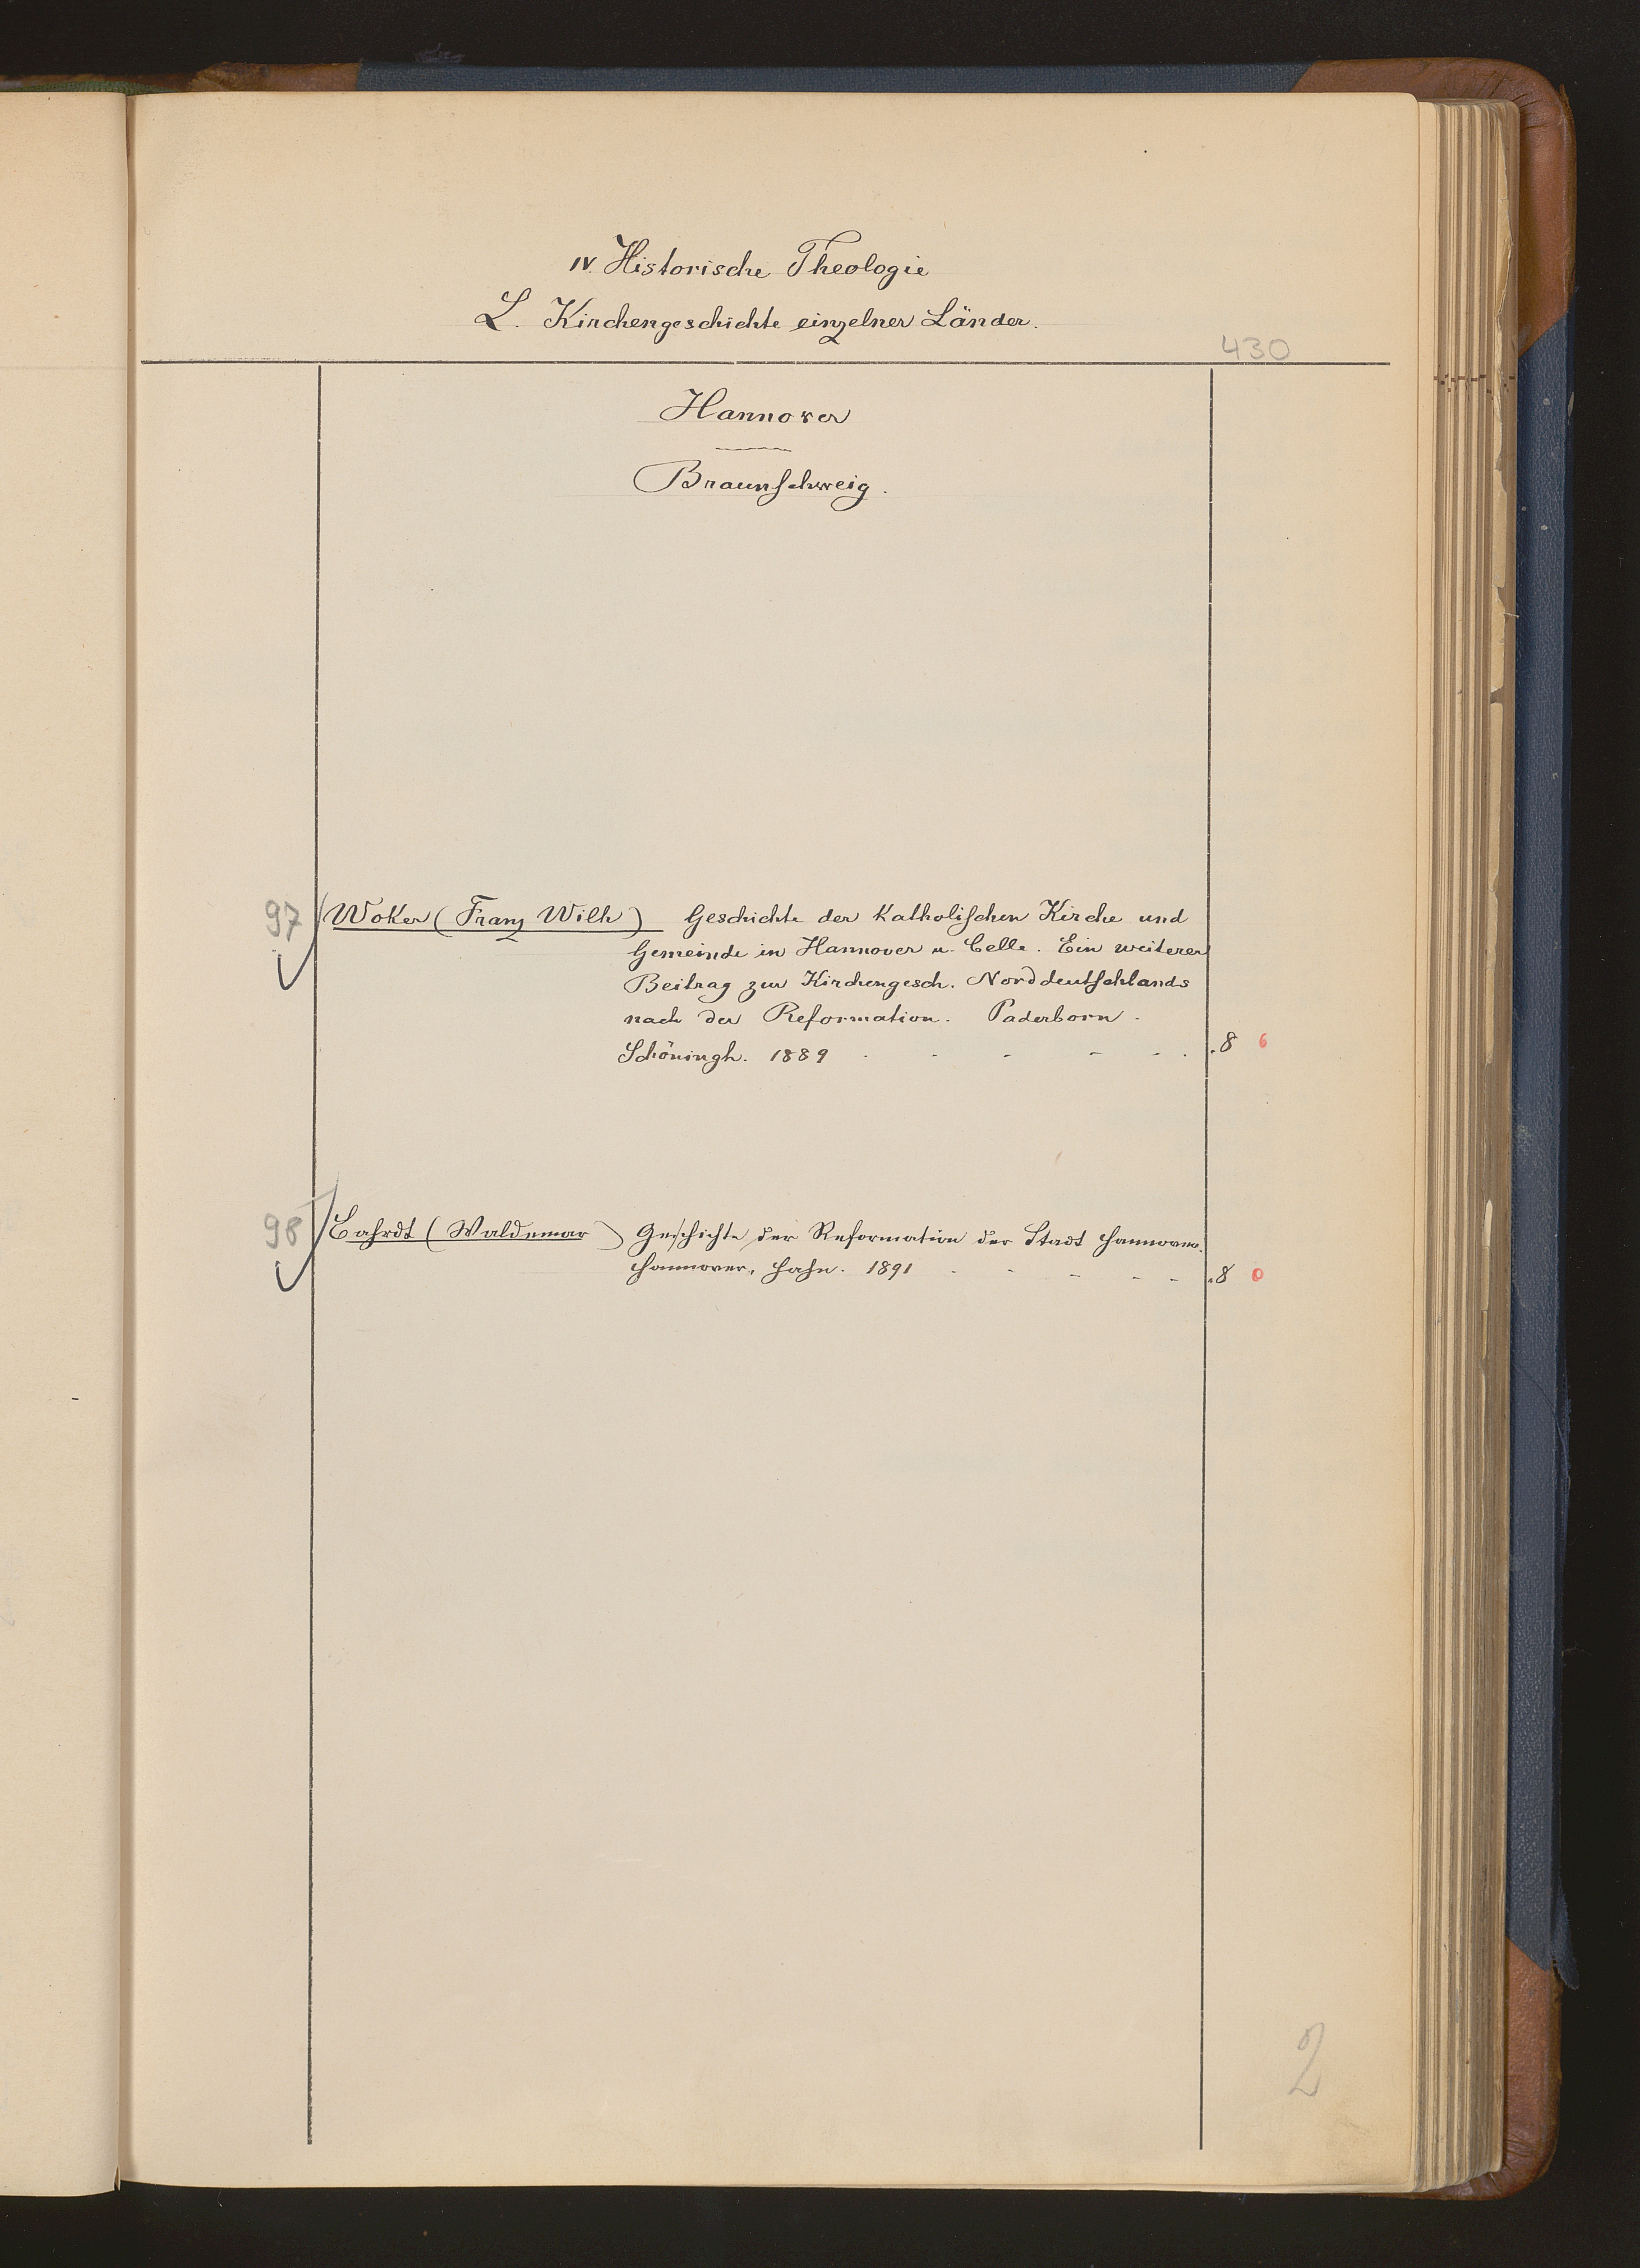 IV. Historische Theologie
L. Kirchengeschichte einzelner Länder.
430
Hannover
Braunschweig.
97 Woker (Franz Wilh) Geschichte der Katholischen Kirche und
Gemeinde in Hannover u. Celle. Ein weiterer
Beitrag zur Kirchengesch. Norddeutschlands
nach der Reformation. Paderborn.
Schöningh. 1889 . - - - - . .8 6
98 Bahrdt (Waldemar) Geschichte der Reformation der Stadt Hannover.
Hannover, Hahn. 1891 - - - - - .8 0
2